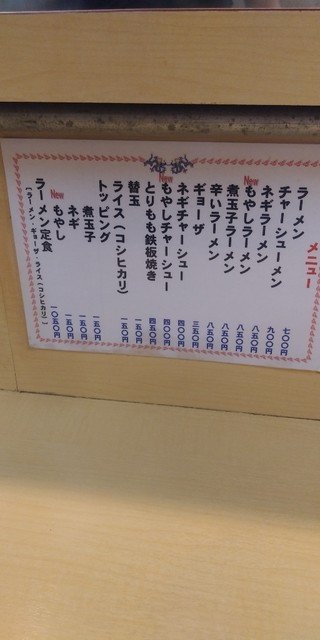 メニュー
ラーメン 七〇〇円
チャーシューメン 九〇〇円
ネギラーメン 八五〇円
New もやしラーメン 八五〇円
煮玉子ラーメン 八五〇円
辛いラーメン 八五〇円
ギョーザ 三五〇円
ネギチャーシュー 四〇〇円
New もやしチャーシュー 四〇〇円
とりもも鉄板焼き 四五〇円
替玉 一五〇円
ライス(コシヒカリ) 一五〇円
トッピング
煮玉子 一五〇円
ネギ 一五〇円
New もやし 一五〇円
ラーメン定食 一〇五〇円
(ラーメン・ギョーザ・ライス(コシヒカリ))